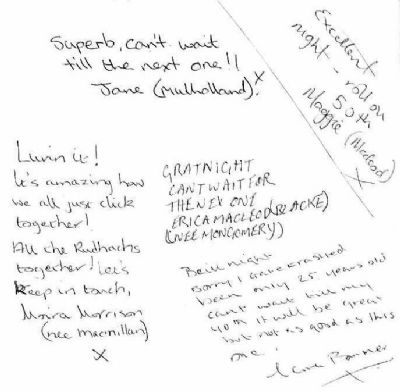 Superb, can't wait
till the next one!!
Jane (Mulholland)! x
Excellent
night - roll on
50th
Maggie (Macleod)
X
Luvin it!
It's amazing how
we all just click
together!
All the Rudhachs
together! Let's
keep in touch,
Moira Morrison
(nee macmillan)
X
GRATNIGHT
CANT WAIT FOR
THE NEX ONE
ERICA MACLEOD (BLACKE)
(NEE MONTGOMERY)
Brill night
Sorry I gate crashed
been only 25 years old
can't wait till my
40th it will be great
but not as good as this
one!